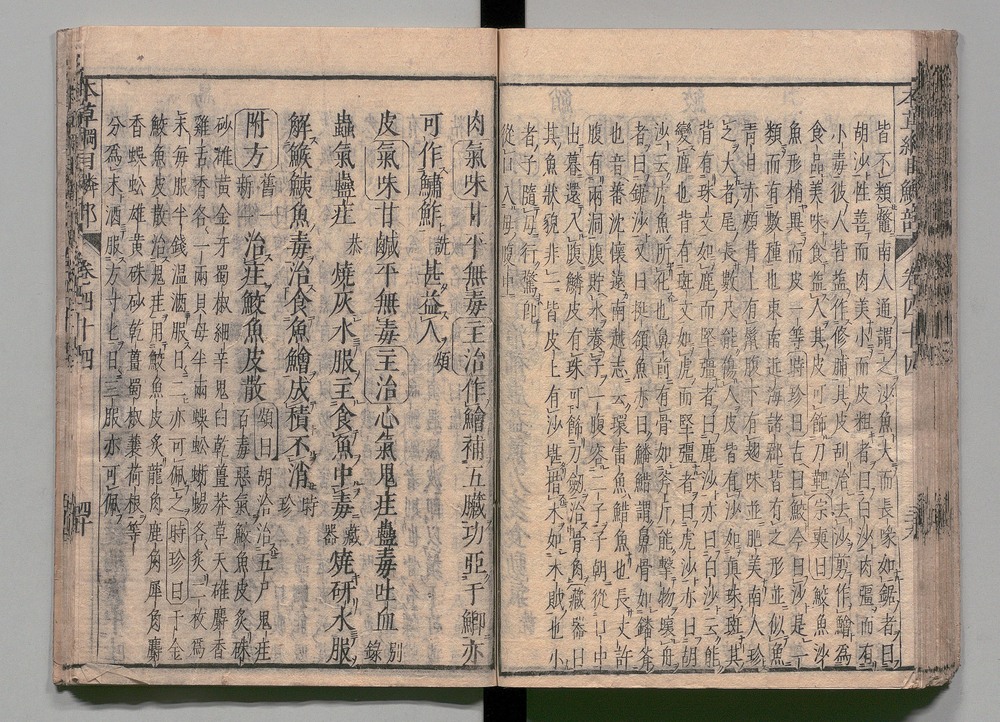 皆不類鼈南人通謂之沙魚大而長喙如鋸者曰
胡沙性善而肉美小而皮粗者曰白沙肉彊而有
小毒彼人皆鹽作修脯其皮刮治去沙剪作鱠爲
食品美味食益人其皮可飾刀靶宗奭曰鮫魚沙
魚形稍異而皮一等時珍曰古曰鮫今曰沙是一
類而有數種也東南近海諸郡皆有之形並似魚
青目赤頰背上有鬣腹下有翅味並肥美南人珍
之大者尾長數尺能傷人皮皆有沙如眞珠斑其
背有珠文如鹿而堅彊者曰鹿沙亦曰白沙云能
變鹿也背有斑文如虎而堅彊者曰虎沙亦曰胡
沙云虎魚所化也鼻前有骨如斧斤能擊物壞舟
者曰鋸沙又曰挺額魚亦曰鱕䱜謂鼻骨如鐇斧
也音蕃沈懷遠南越志云環雷魚䱜魚也長丈許
腹有兩洞腹貯水養子一腹容二子子朝從口中
出暮還入腹鱗皮有珠可飾刀劒治骨角藏器曰
其魚狀貌非一皆皮上有沙堪揩木如木賊也小
者子隨母行驚即
從口入母腹中
肉氣味甘平無毒主治作鱠補五臟功亞于鯽亦
可作鱐鮓詵甚益人頌
皮氣味甘鹹平無毒主治心氣鬼疰蠱毒吐血別錄
蟲氣蠱疰恭燒灰水服主食魚中毒藏器燒研水服
解鯸鮧魚毒治食魚鱠成積不消時珍
附方舊一新一治疰鮫魚皮散頌曰胡洽治五尸鬼疰
百毒惡氣鮫魚皮炙硃
砂雄黃金牙蜀椒細辛鬼臼乾薑莽草天雄麝香
雞舌香各一兩貝母半兩蜈蚣蜥蜴各炙二枚爲
末每服半錢溫酒服日二亦可佩之時珍曰千金
鮫魚皮散治鬼疰用鮫魚皮炙龍角鹿角犀角麝
香蜈蚣雄黃硃砂乾薑蜀椒蘘荷根等
分爲末酒服方寸匕日三服亦可佩